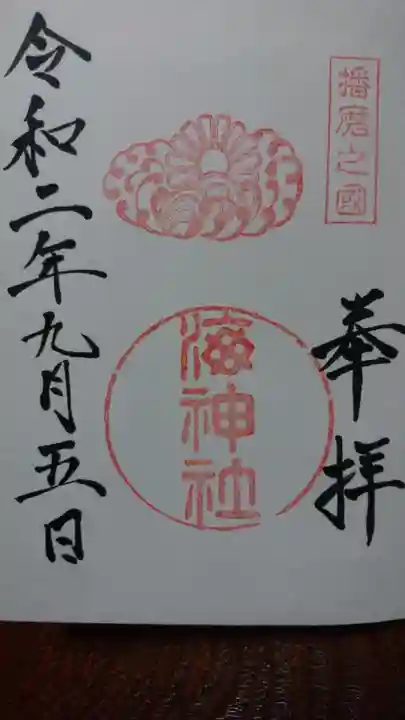 播磨之國
奉拝
海神社
令和二年九月五日